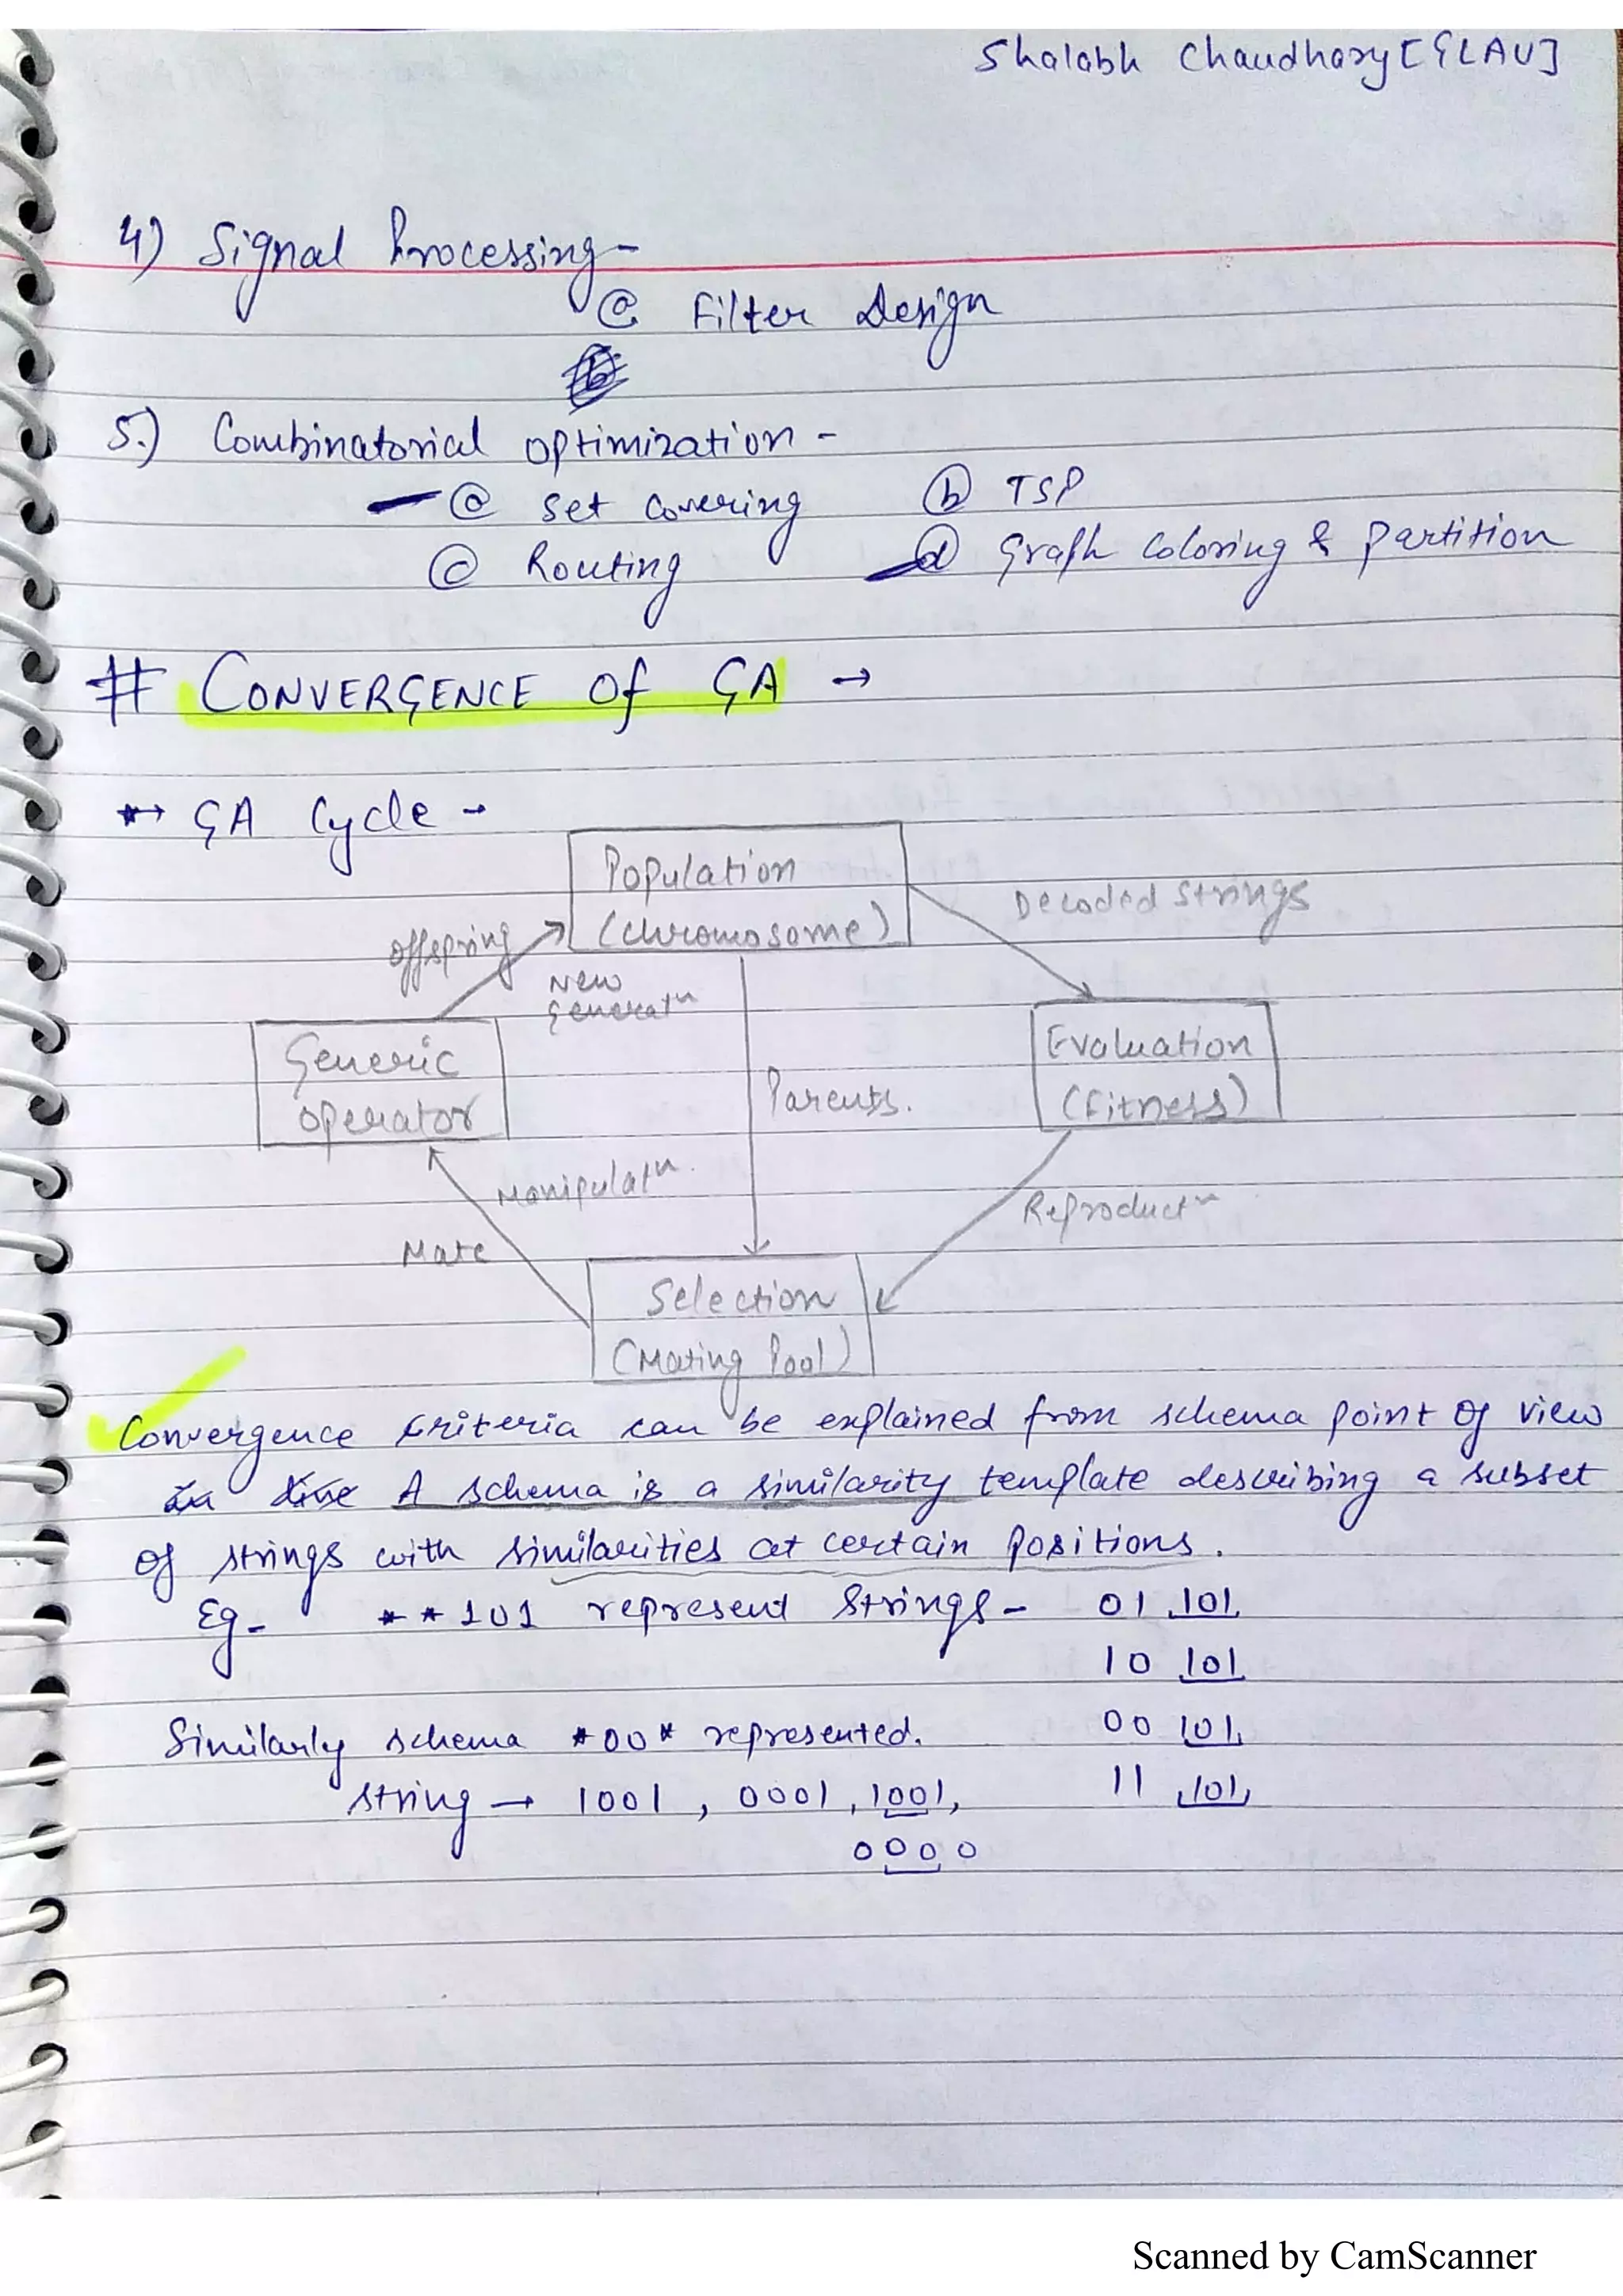 Shalabh Chaudhary [GLAU]
4) Signal Processing -
ⓐ Filter Design
5.) Combinatorial optimization -
ⓐ Set Covering ⓑ TSP
ⓒ Routing ⓓ Graph Coloring & Partition
# CONVERGENCE Of GA →
*→ GA Cycle -
Population
(chromosome)
Decoded Strings
Offspring
New
Generatⁿ
Generic
operator
Evaluation
(Fitness)
Parents.
Manipulatⁿ.
Reproductⁿ
Mate
Selection
(Mating Pool)
Convergence Criteria can be explained from schema point of view
A schema is a similarity template describing a subset
of strings with similarities at certain Positions.
Eg- **101 represent Strings - 01 101
10 101
Similarly schema *00* represented. 00 101
string → 1001, 0001, 1001, 11 101
0000
Scanned by CamScanner